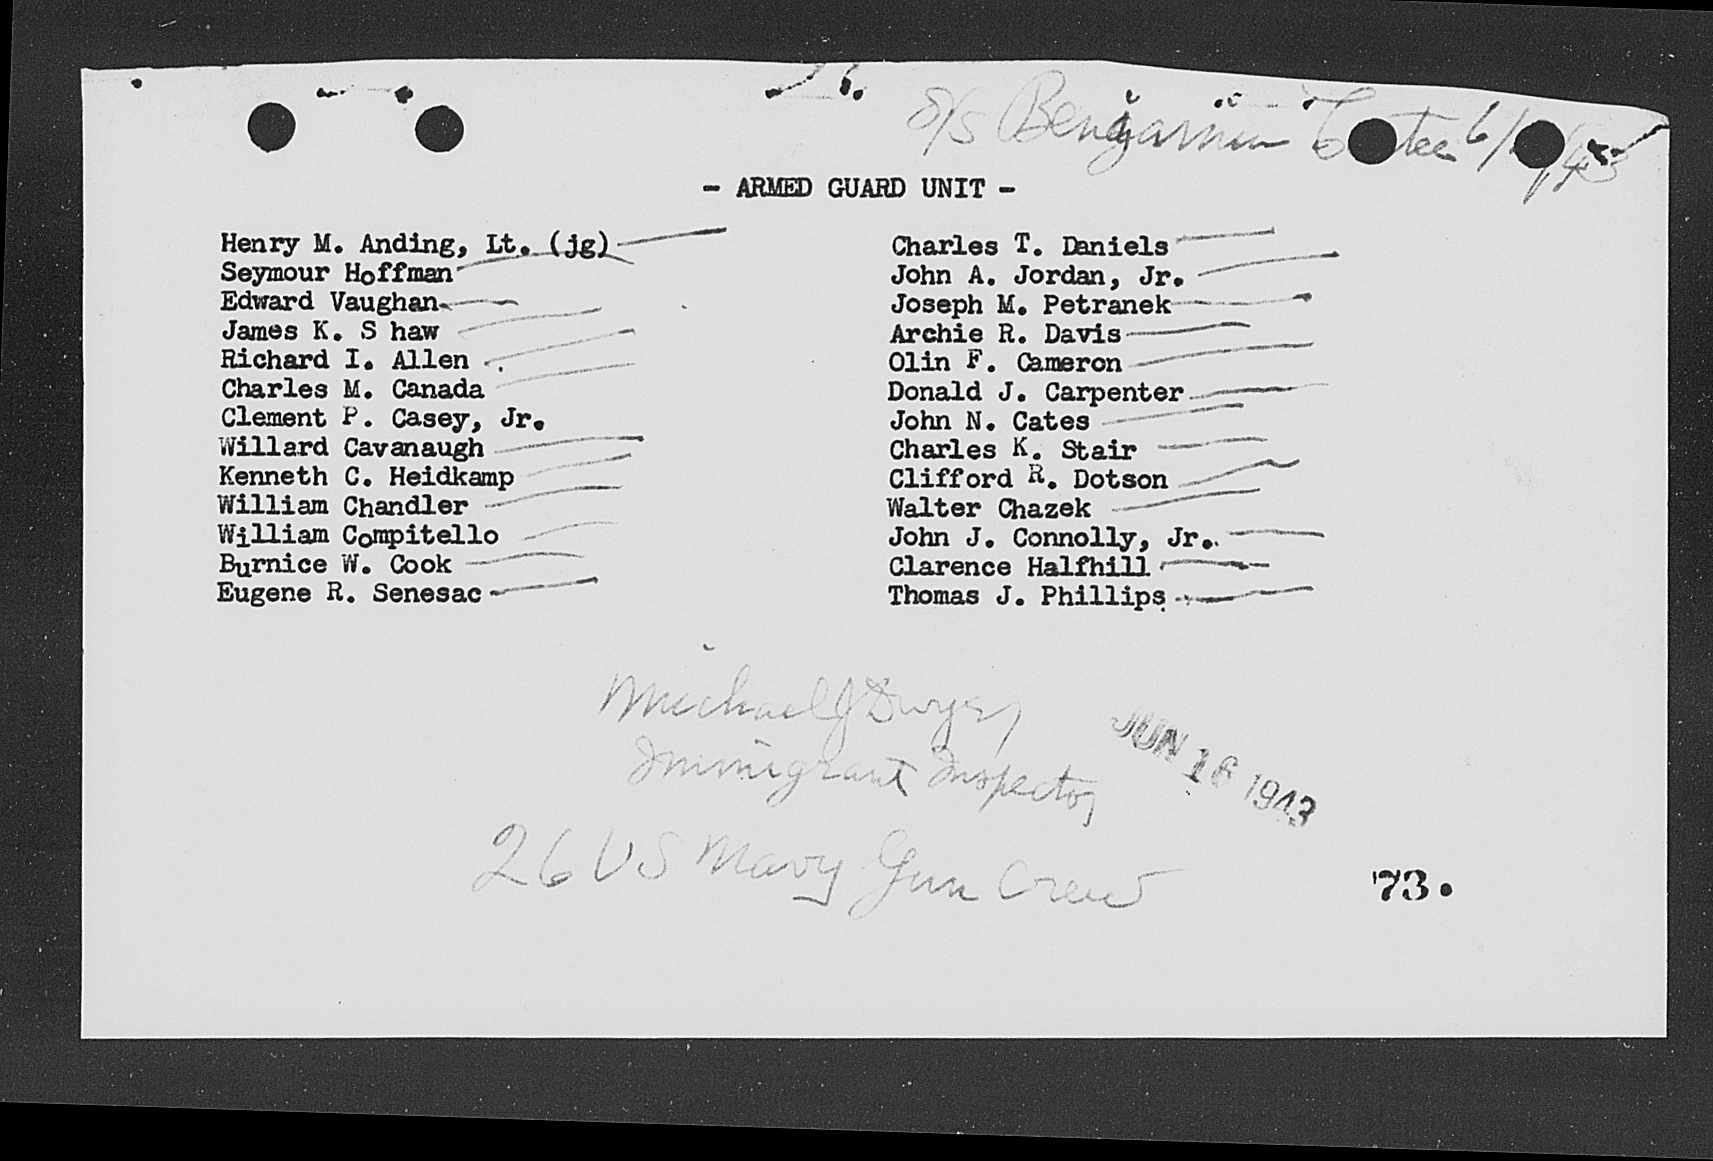 S/S Benjamin
- ARMED GUARD UNIT -
Henry M. Anding, Lt. (jg)
Seymour Hoffman
Edward Vaughan
James K. S haw
Richard I. Allen
Charles M. Canada
Clement P. Casey, Jr.
Willard Cavanaugh
Kenneth C. Heidkamp
William Chandler
William Compitello
Burnice W. Cook
Eugene R. Senesac
Charles T. Daniels
John A. Jordan, Jr.
Joseph M. Petranek
Archie R. Davis
Olin F. Cameron
Donald J. Carpenter
John N. Cates
Charles K. Stair
Clifford R. Dotson
Walter Chazek
John J. Connolly, Jr.
Clarence Halfhill
Thomas J. Phillips
Michael J Dwyer
Immigrant Inspector
JUN 16 1943
26 US Navy Gun Crew
73.